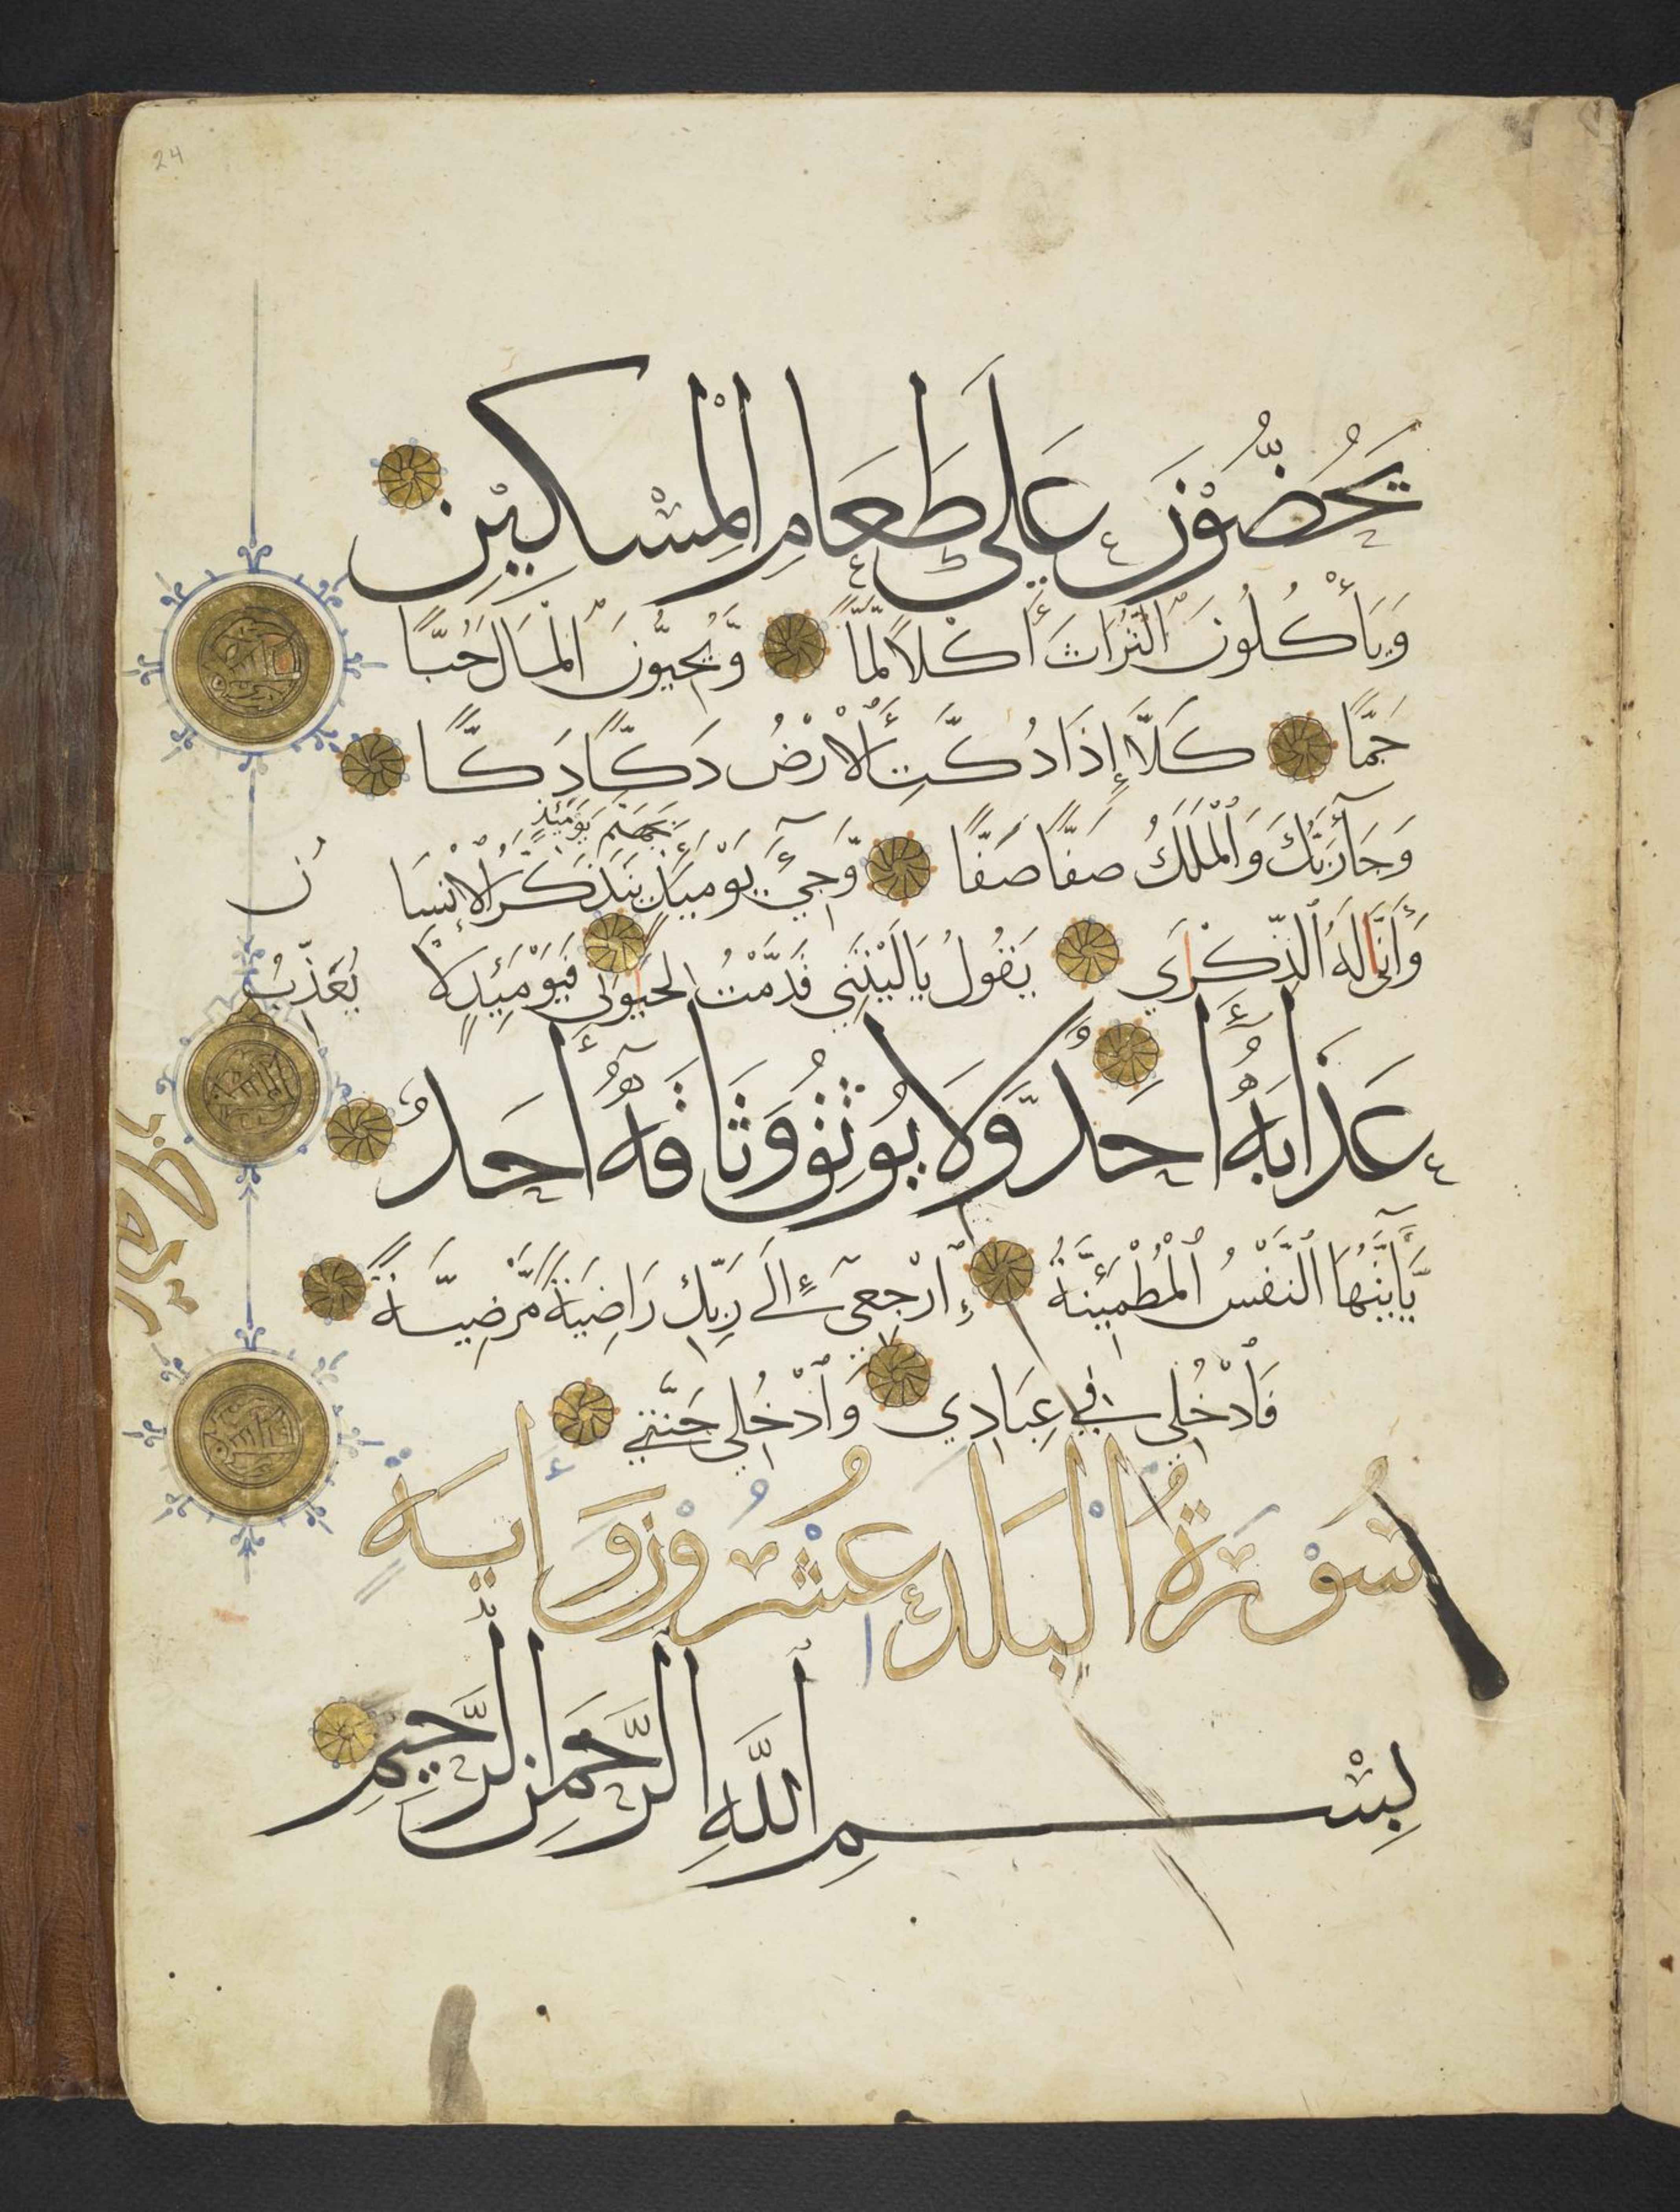 24
يَحُضُّوْنَ عَلَى طَعَامِ الْمِسْكِيْنِ
وَيَأْكُلُونَ التُّرَاثَ أَكْلًا لَّمًّا وَّيُحِبُّونَ الْمَالَ حُبًّا
جَمًّا كَلَّا إِذَا دُكَّتِ الْأَرْضُ دَكًّا دَكًّا
وَجَآءَ رَبُّكَ وَالْمَلَكُ صَفًّا صَفًّا وَّجِيْٓءَ يَوْمَئِذٍ يَتَذَكَّرُ الْإِنْسَانُ
بِجَهَنَّمَ يَوْمَئِذٍ
وَأَنَّى لَهُ الذِّكْرَى يَقُولُ يَا لَيْتَنِي قَدَّمْتُ لِحَيَوتِي فَيَوْمَئِذٍ لَا يُعَذِّبُ
عَذَابَهُ أَحَدٌ وَّلَا يُوثِقُ وَثَاقَهُ أَحَدٌ
يَّآ أَيَّتُهَا النَّفْسُ الْمُطْمَئِنَّةُ ارْجِعِيٓ إِلَى رَبِّكِ رَاضِيَةً مَّرْضِيَّةً
فَادْخُلِي فِي عِبَادِي وَادْخُلِي جَنَّتِي
سُوْرَةُ الْبَلَدِ عِشْرُوْنَ وَأَيَةٍ
بِسْمِ اللَّهِ الرَّحْمَنِ الرَّحِيْمِ